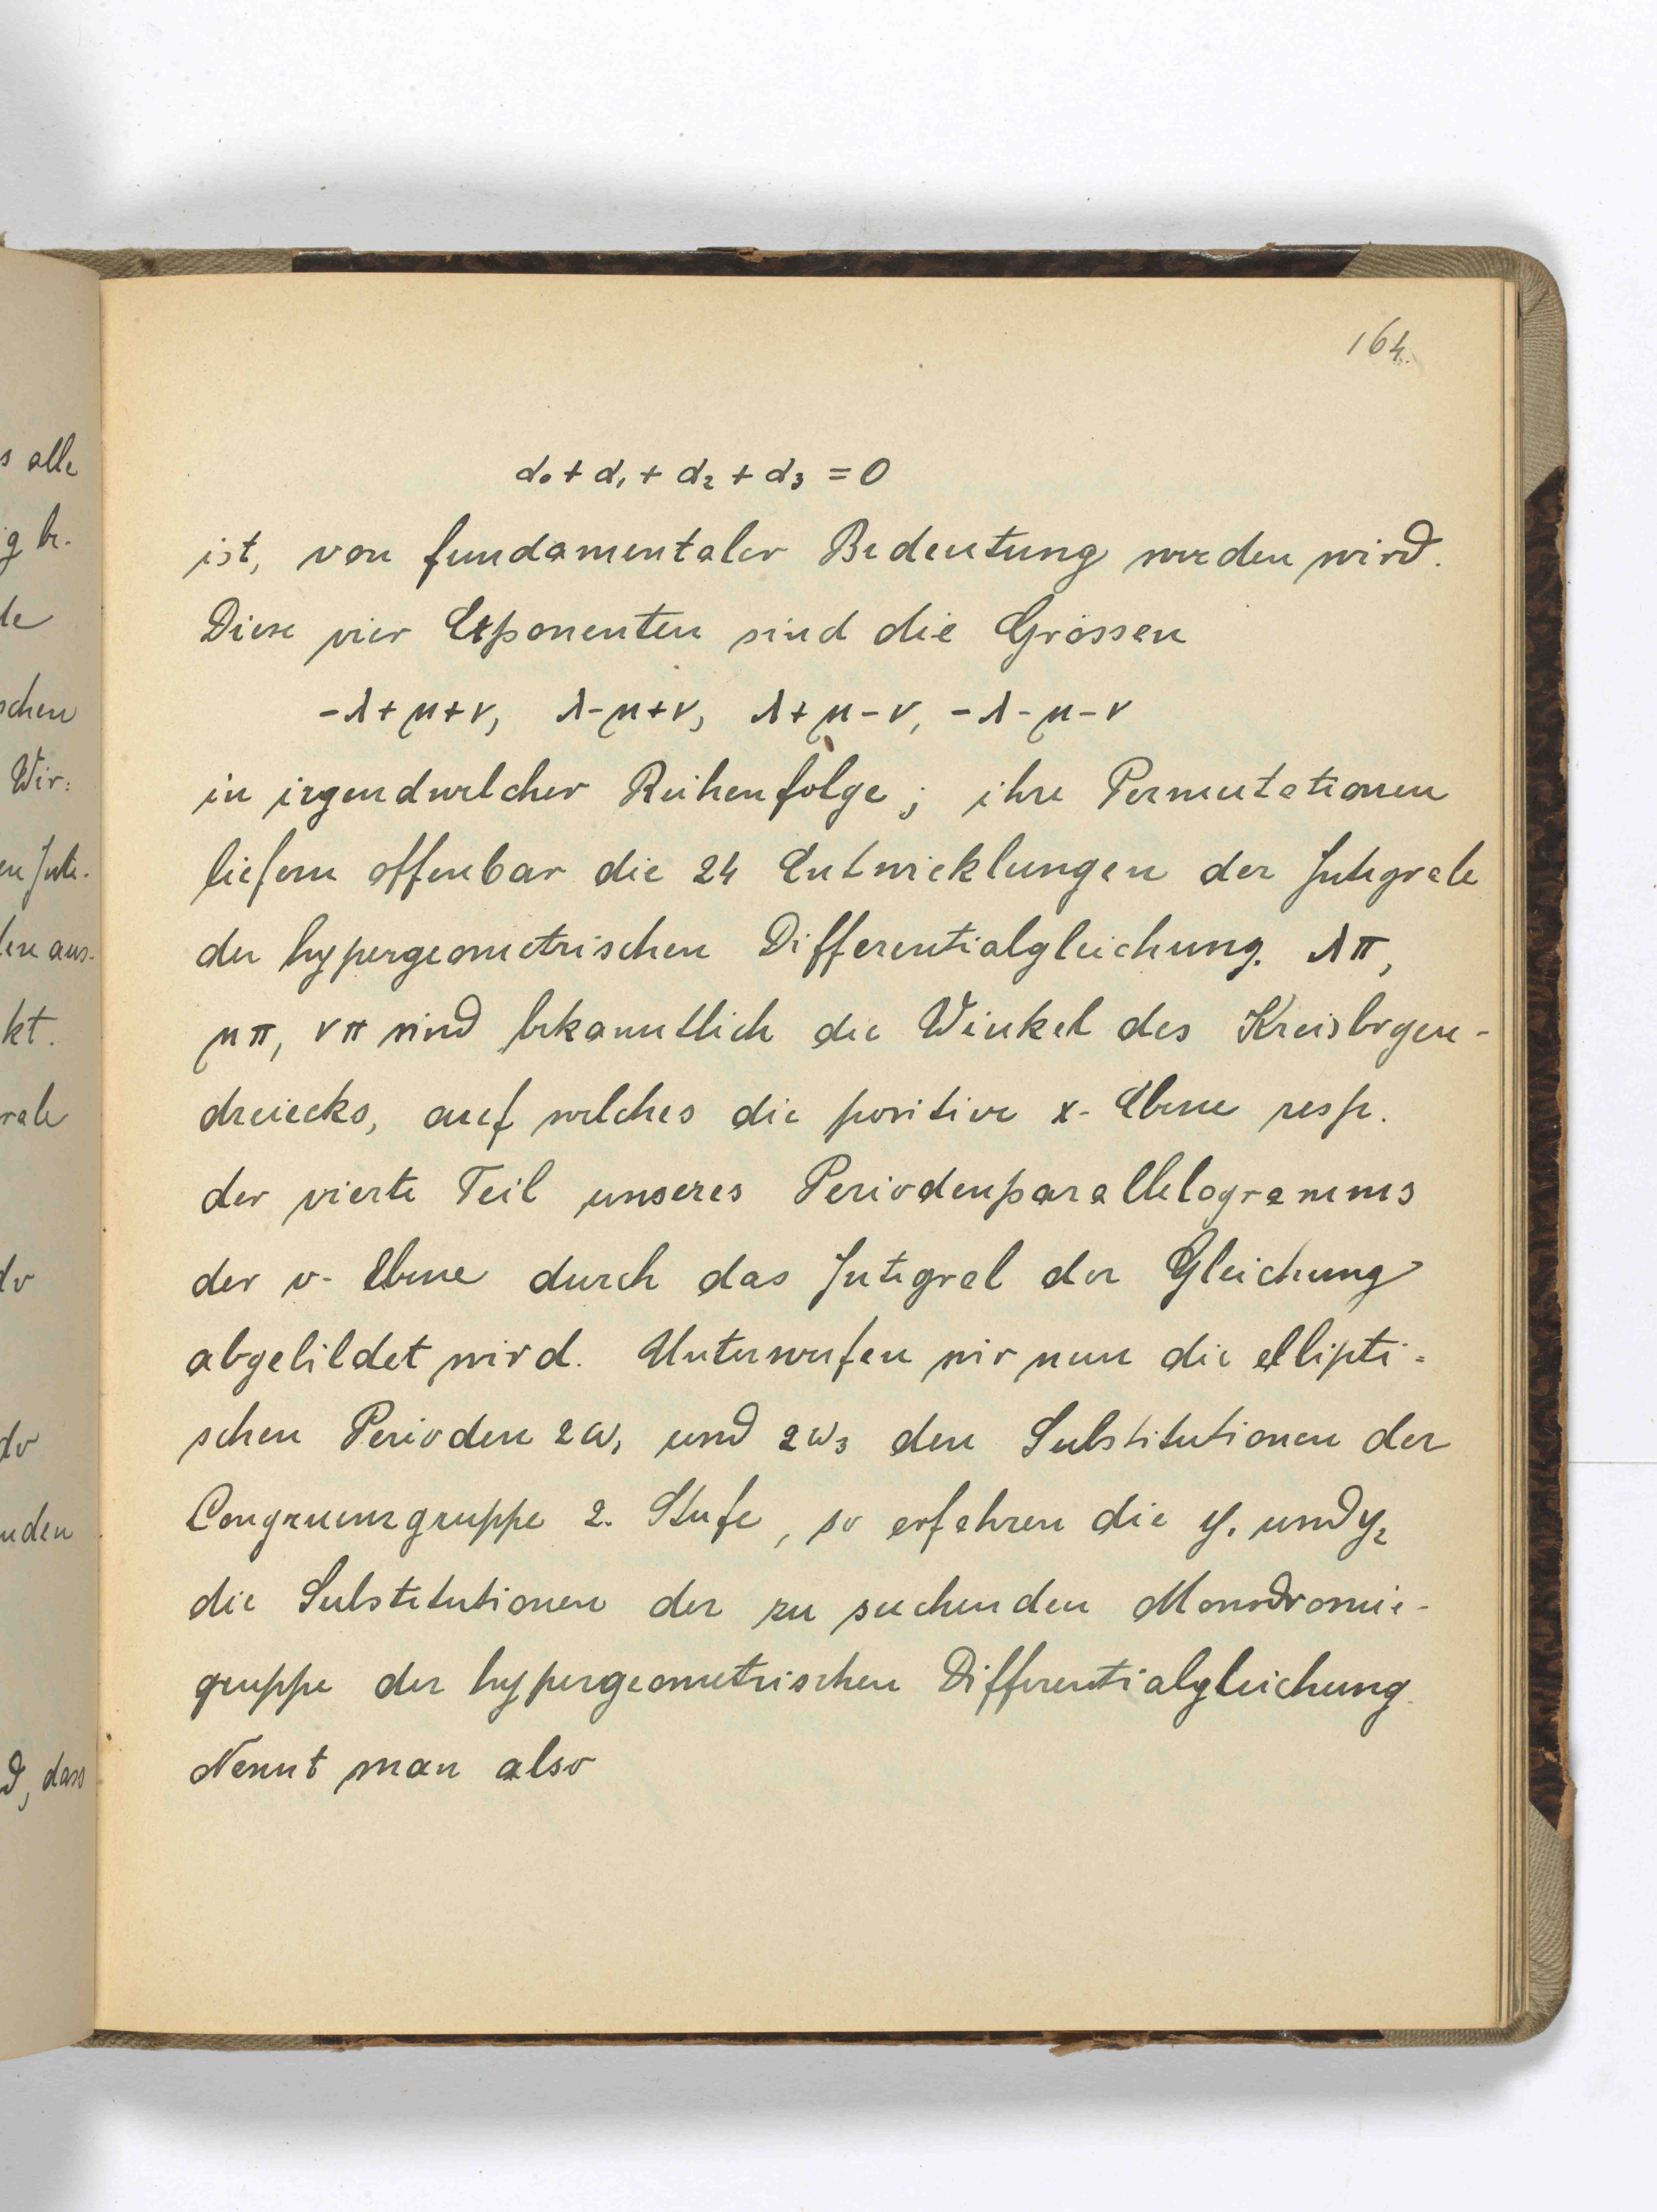 164.
α₀ + α₁ + α₂ + α₃ = 0
ist, von fundamentaler Bedeutung werden wird.
Diese vier Exponenten sind die Grössen
-λ+μ+ν, λ-μ+ν, λ+μ-ν, -λ-μ-ν
in irgendwelcher Reihenfolge; ihre Permutationen
liefern offenbar die 24 Entwicklungen der Integrale
der hypergeometrischen Differentialgleichung. λπ,
μπ, νπ sind bekanntlich die Winkel des Kreisbogen-
dreiecks, auf welches die positive x-Ebene resp.
der vierte Teil unseres Periodenparallelogramms
der v-Ebene durch das Integral der Gleichung
abgebildet wird. Unterwerfen wir nun die ellipti-
schen Perioden 2ω₁ und 2ω₃ den Substitutionen der
Congruenzgruppe 2. Stufe, so erfahren die y₁ und y₂
die Substitutionen der zu suchenden Monodromie-
gruppe der hypergeometrischen Differentialgleichung.
Nennt man also
s alle
g be-
de
schen
Wir-
en Inte-
aus-
kt.
rale
dv
dv
nden
d, dass